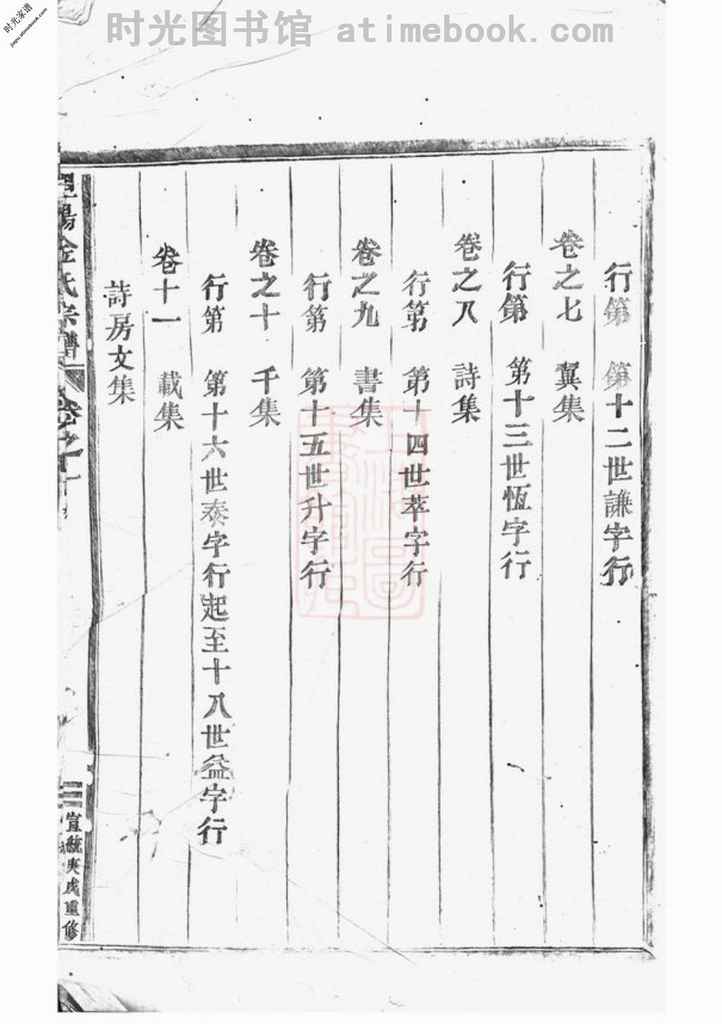 时光图书馆 atimebook.com
时光家谱
jiapu.atimebook.com
行第 第十二世謙字行
卷之七 翼集
行第 第十三世恆字行
卷之八 詩集
行第 第十四世萃字行
卷之九 書集
行第 第十五世升字行
卷之十 千集
行第 第十六世泰字行起至十八世益字行
卷十一 載集
詩房文集
陽金氏宗譜 卷之
宣統庚戌重修